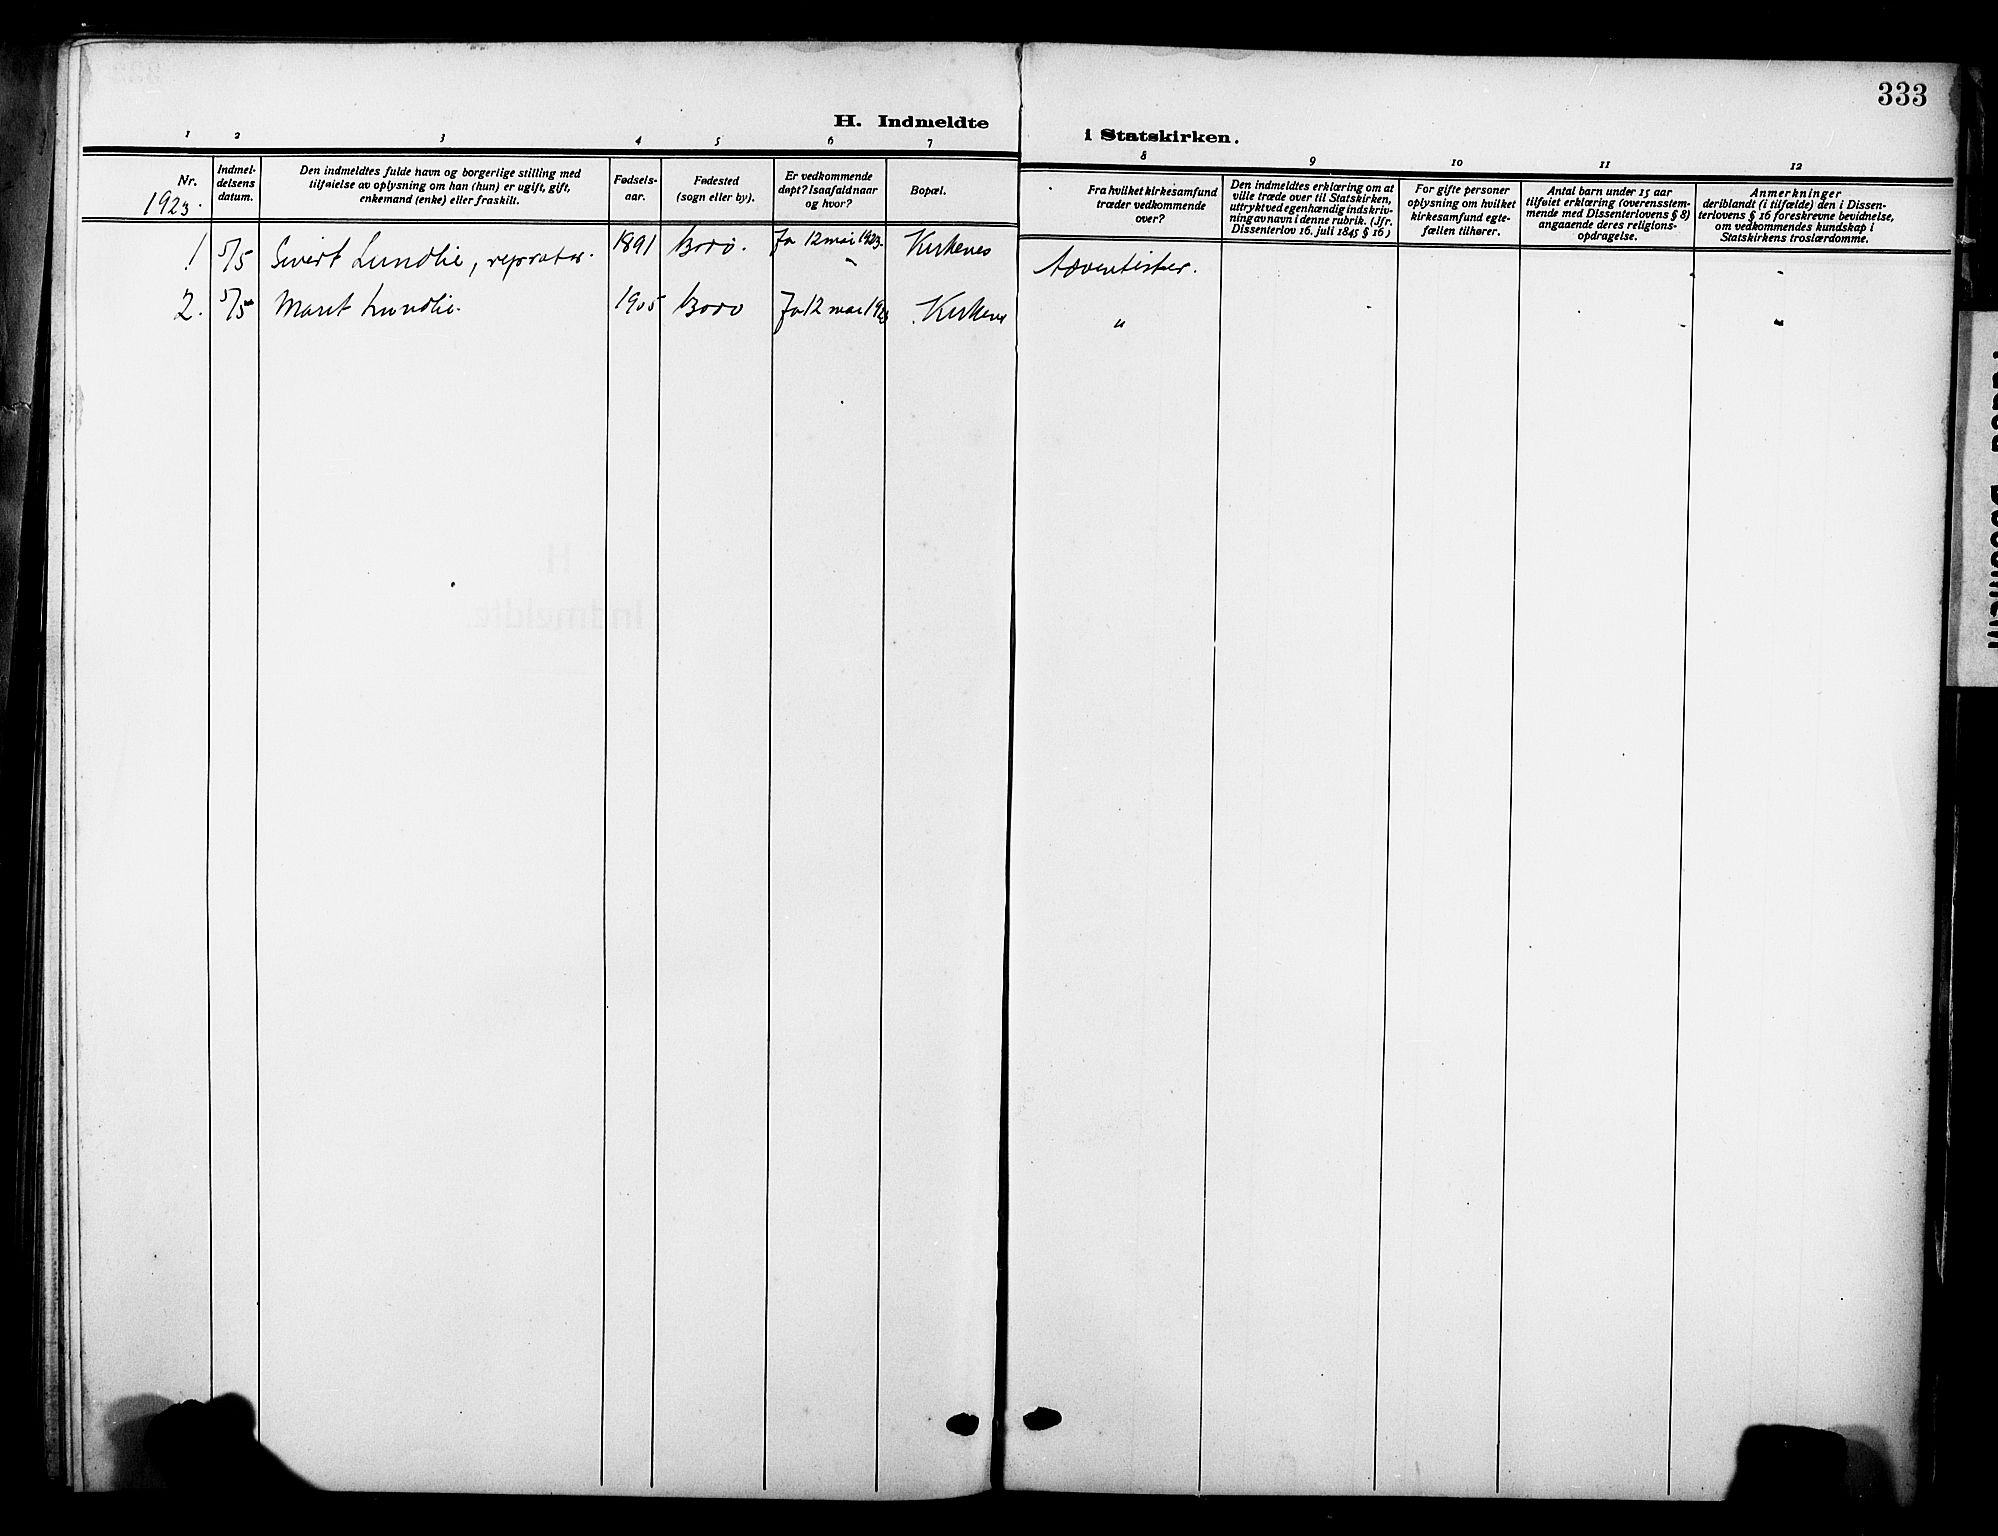 333
H. Indmeldte i Statskirken.
1 2 3 4 5 6 7 8 9 10 11 12
Nr.
1923.
Indmel-
delsens
datum.
Den indmeldtes fulde navn og borgerlige stilling med
tilføielse av oplysning om han (hun) er ugift, gift,
enkemand (enke) eller fraskilt.
Fødsels-
aar.
Fødested
(sogn eller by).
Er vedkommende
døpt? Isaafald naar
og hvor?
Bopæl.
Fra hvilket kirkesamfund
træder vedkommende
over?
Den indmeldtes erklæring om at
ville træde over til Statskirken,
uttrykt ved egenhændig indskriv-
ning av navn i denne rubrik. (Jfr.
Dissenterlov 16. juli 1845 § 16)
For gifte personer
oplysning om hvilket
kirkesamfund egte-
fællen tilhører.
Antal barn under 15 aar
tilføiet erklæring (overensstem-
mende med Dissenterlovens § 8)
angaaende deres religions-
opdragelse.
Anmerkninger
deriblandt (i tilfælde) den i Dissen-
terlovens § 16 foreskrevne bevidnelse,
om vedkommendes kundskap i
Statskirkens troslærdomme.
1 5/5 Sivert Lundlie, 1891 Ja 12 mai 1923. Kirkenes Adventister.
2. 5/5 Marit Lundlie. 1905 Ja 12 mai 1923 Kirkenes "